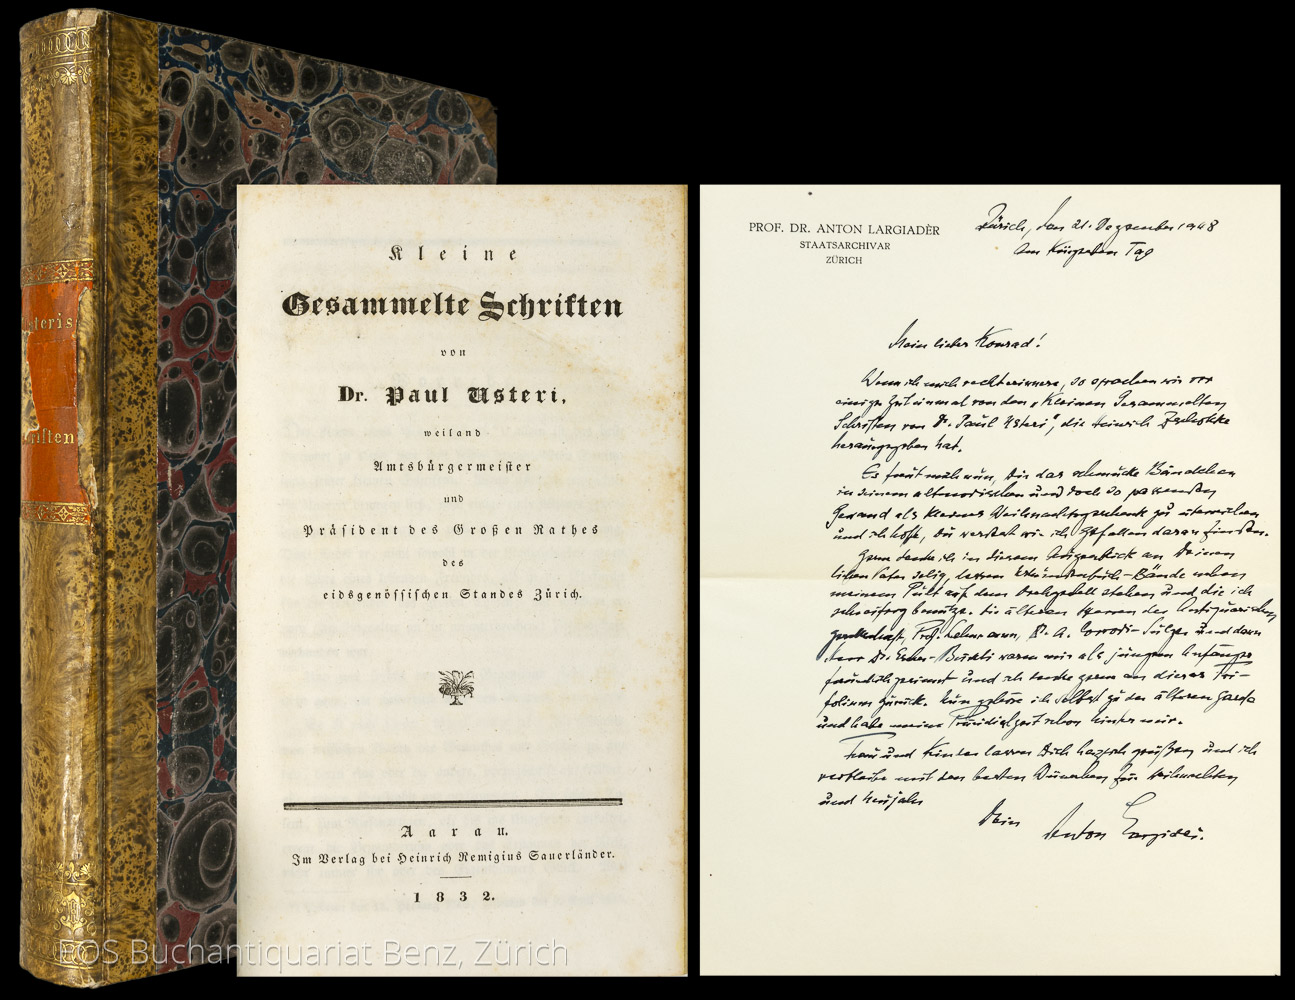 steris
riften
Kleine
Gesammelte Schriften
von
Dr. Paul Usteri,
weiland
Amtsbürgermeister
und
Präsident des Großen Rathes
des
eidsgenössischen Standes Zürich.
Aarau.
Im Verlag bei Heinrich Remigius Sauerländer.
1832.
PROF. DR. ANTON LARGIADÈR
STAATSARCHIVAR
ZÜRICH
Zürich, den 21. Dezember 1948
am kürzesten Tag
Mein lieber Konrad!
Wenn ich mich recht erinnere, so sprachen wir vor
einiger Zeit einmal von den „Kleinen Gesammelten
Schriften von Dr. Paul Usteri", die Heinrich Zschokke
herausgegeben hat.
Es freut mich nun, Dir das schmucke Bändchen
in seinem altmodischen und doch so passenden
Gewand als kleines Weihnachtsgeschenk zu überreichen
und ich hoffe, Du werdest wie ich Gefallen daran finden.
Gern denke ich in diesem Augenblick an Deinen
lieben Vater selig, dessen Urkundenbuch-Bände neben
meinem Pult auf dem Drehgestell stehen und die ich
sehr eifrig benütze. Die älteren Herren der Antiquarischen
Gesellschaft, Prof. Lehmann, Dr. A. Corrodi-Sulzer und dann
Herr Dr. Escher-Bürkli waren mir als jungem Anfänger
freundlich gesinnt und ich denke gern an dieses Tri-
folium zurück. Nun gehöre ich selbst zu der älteren Garde
und habe meine Präsidialzeit schon hinter mir.
Frau und Kinder lassen Dich herzlich grüßen und ich
verbleibe mit den besten Wünschen für Weihnachten
und Neujahr
Dein
Anton Largiadèr.
EOS Buchantiquariat Benz, Zürich